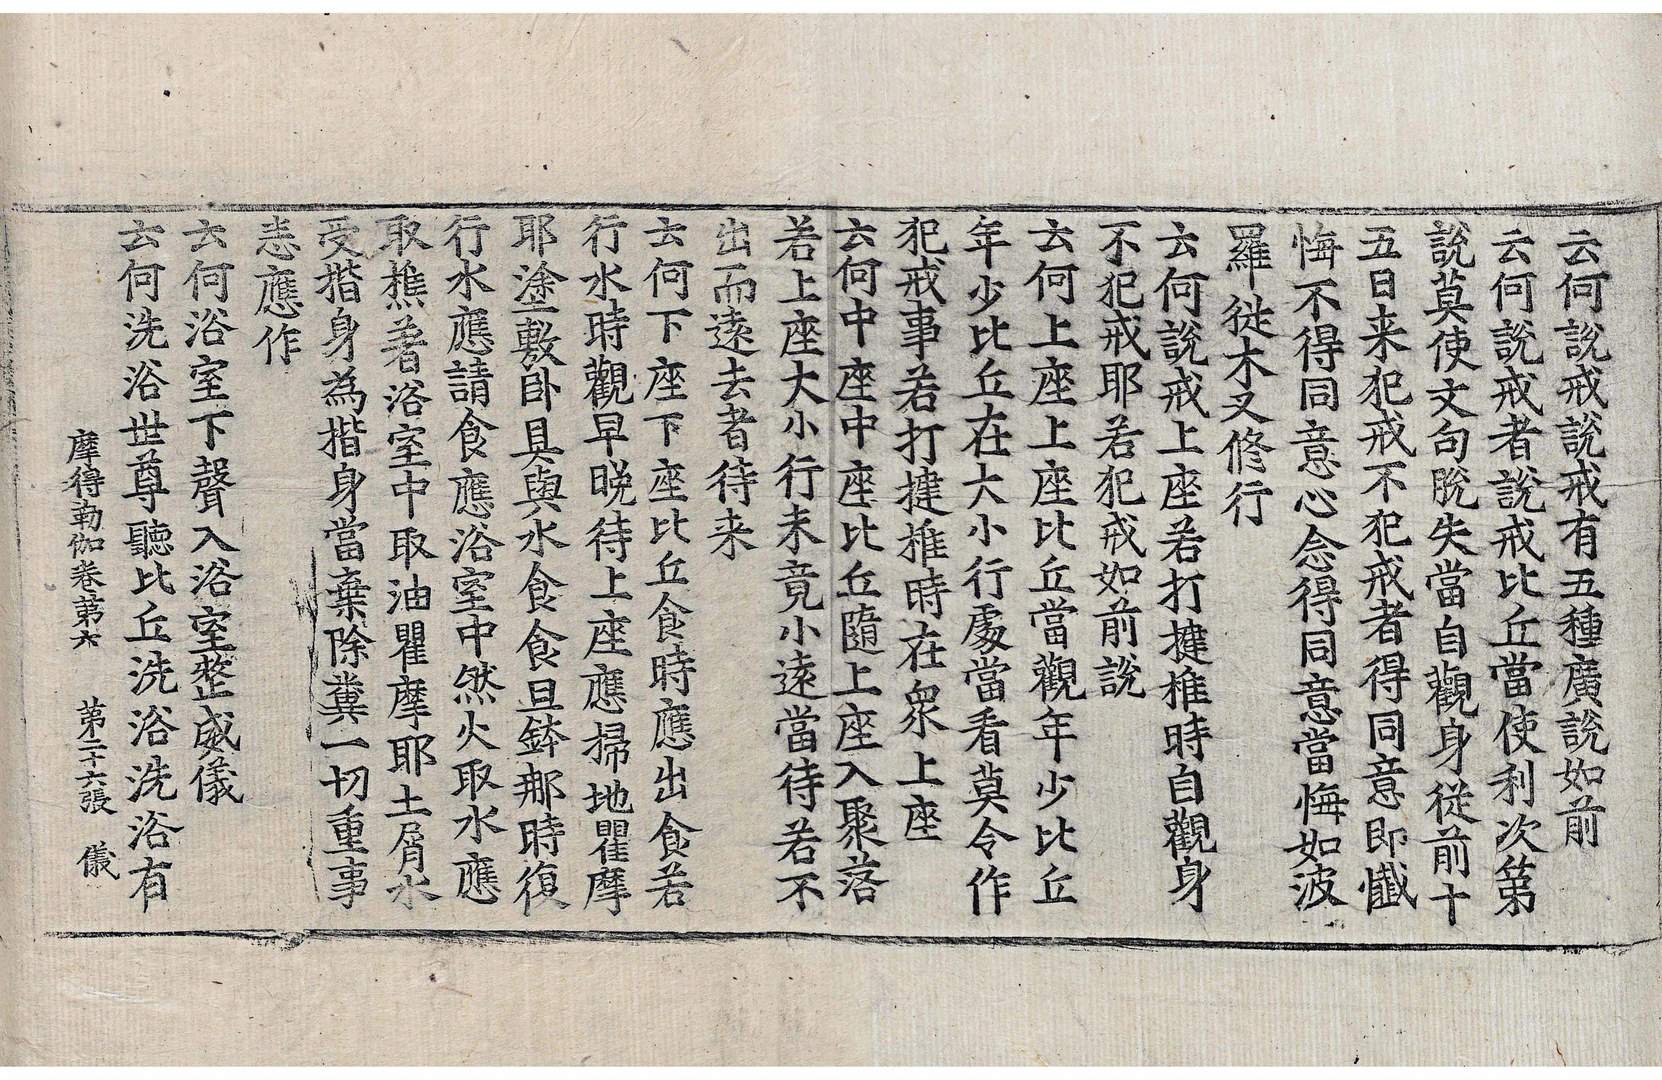 云何說戒說戒有五種廣說如前
云何說戒者說戒比丘當使利次第
說莫使文句脫失當自觀身從前十
五日来犯戒不犯戒者得同意即懺
悔不得同意心念得同意當悔如波
羅提木叉修行
云何說戒上座若打揵椎時自觀身
不犯戒耶若犯戒如前說
云何上座上座比丘當觀年少比丘
年少比丘在大小行處當看莫令作
犯戒事若打揵椎時在衆上座
云何中座中座比丘隨上座入聚落
若上座大小行未竟小遠當待若不
出而遠去者待来
云何下座下座比丘食時應出食若
行水時觀早晚待上座應掃地瞿摩
耶塗敷卧具與水食食旦鉢那時復
行水應請食應浴室中然火取水應
取樵著浴室中取油瞿摩耶土屑水
受揩身為揩身當棄除糞一切重事
悉應作
云何浴室下聲入浴室整威儀
云何洗浴世尊聽比丘洗浴洗浴有
摩得勒伽卷第六　第二十六張　儀